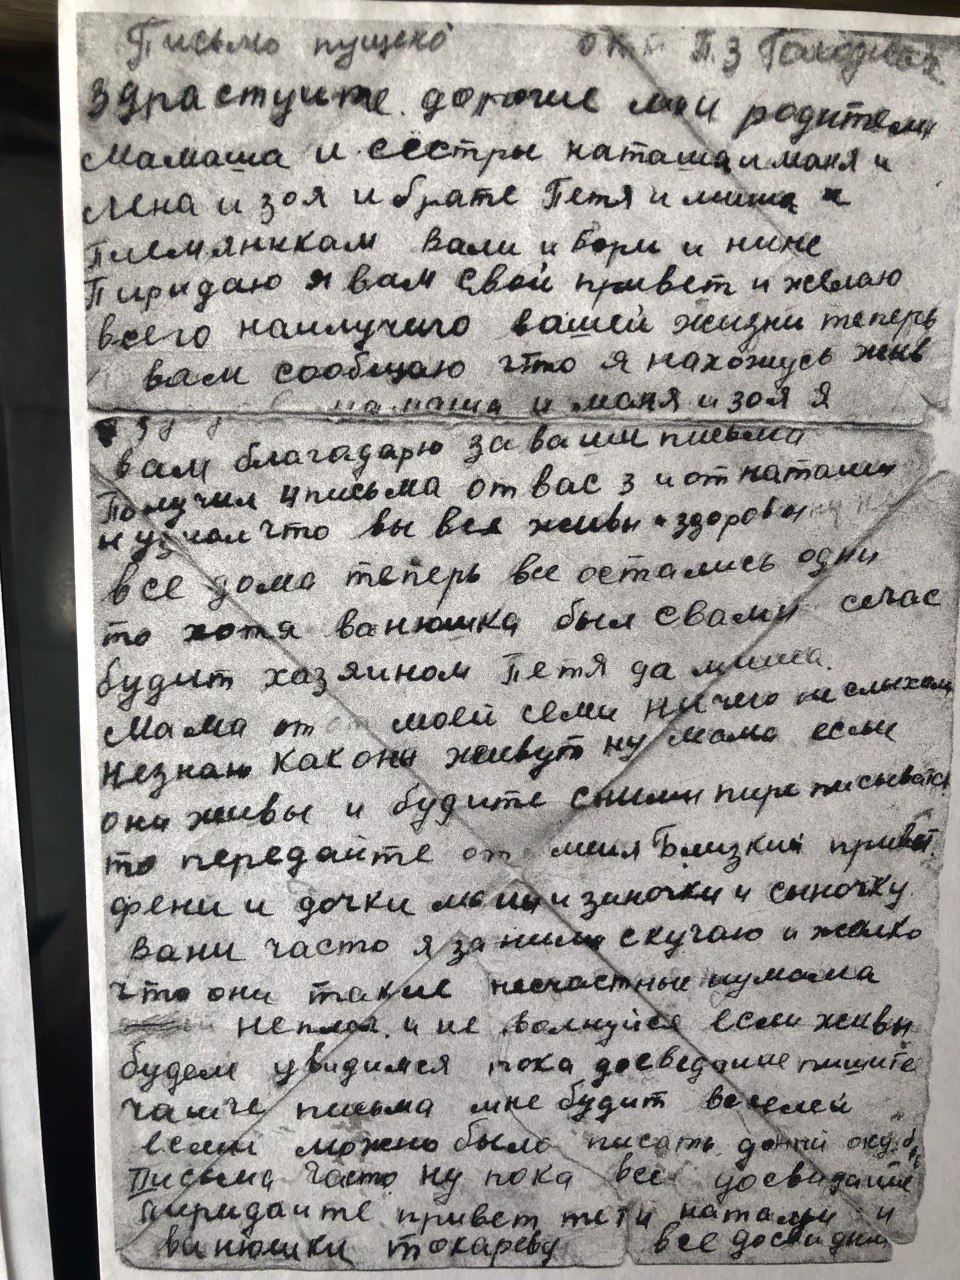 Письмо пущено от П.З
здрастуите дорогие мои родители
мамаша и сестры наташа и маня и
лена и зоя и брате Петя и миша и
Племяникам Вали и Бори и нине
Пиридаю я вам свой привет и желаю
всего наилучиго вашей жизни теперь
вам сообщаю что я нахожусь жив
мамаша и маня и зоя я
вам благадарю за ваши письма
Получил 4 письма от вас 3 и от наташи
и узнал что вы вся живы и здоровы
все дома теперь вы остались одни
то хотя ванюшка был свами сечас
будит хазяином Петя да миша.
Мама от моей семи ничего не слыхал
Незнаю как они живут ну мама если
они живы и будите сними пириписыватся
то передайте от миня Близкий привет
фени и дочки моии зиночки и сыночку
Вани часто я за ними скучаю и жалко
что они такие несчастные ну мама
неплач и не волнуйся если живы
будем увидимся пока досведание пишите
чаще письма мне будит веселей
если можно было писать
Письма часто ну пока все досвидание
пиридайте привет тети натальи и
ванюшки токареву все досвидния